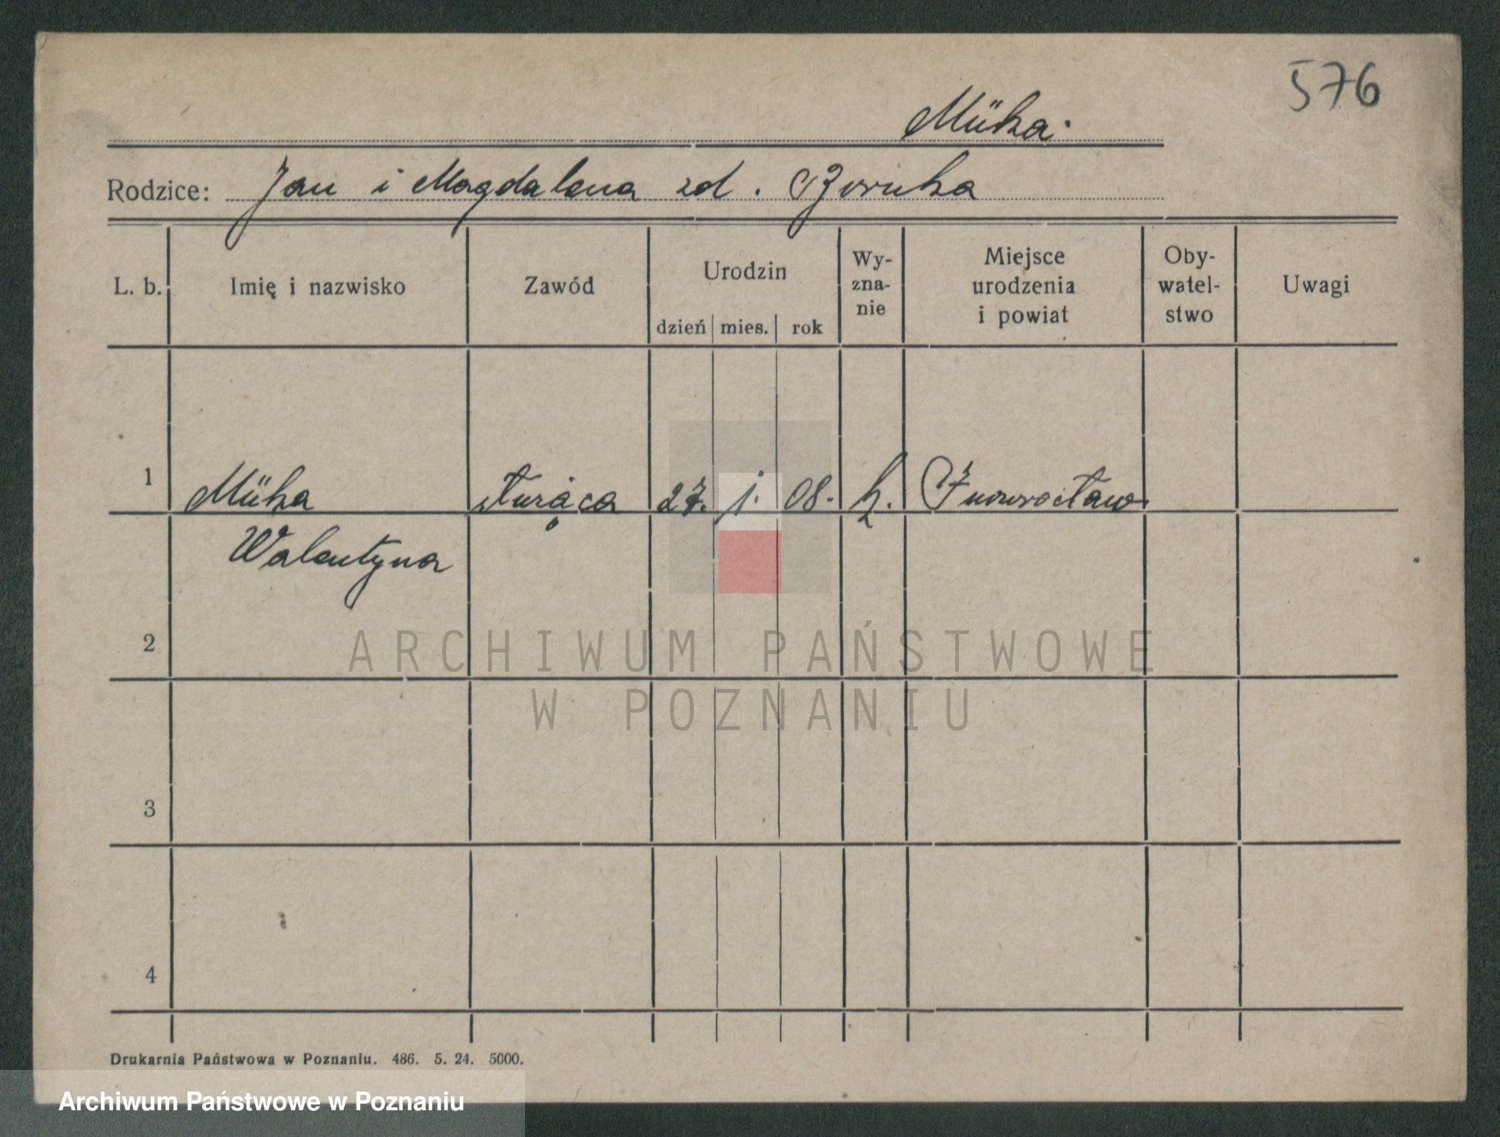 576
Müka.
Rodzice: Jan i Magdalena zd.
L. b. Imię i nazwisko Zawód Urodzin dzień mies. rok Wy-zna-nie Miejsce urodzenia i powiat Oby-watel-stwo Uwagi
1 Müka służąca 27. 1. 08. k. Inowrocław
Walentyna
2
ARCHIWUM PAŃSTWOWE
W POZNANIU
3
4
Drukarnia Państwowa w Poznaniu. 486. 5. 24. 5000.
Archiwum Państwowe w Poznaniu